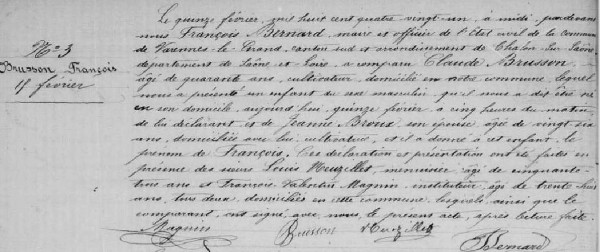 No 3
Brusson François
15 février
Le quinze février, mil huit cent quatre vingt-un, à midi, pardevant
nous François Bernard, maire et officier de l'Etat civil de la commune
de Varennes-le-Grand, canton sud et arrondissement de Chalon-sur-Saône,
département de Saône et Loire, a comparu Claude Brusson,
âgé de quarante ans, cultivateur, domicilié en cette commune, lequel
nous a présenté un enfant du sexe masculin qu'il nous a dit être né
en son domicile, aujourd'hui, quinze février à cinq heures du matin,
de lui déclarant et de Jeannie Broux, son épouse âgée de vingt
ans, domiciliée avec lui cultivatrice, et il a donné à cet enfant, le
prénom de François. Ces déclaration et présentation ont été faites en
présence des sieurs Louis Meuzellet, menuisier, âgé de cinquante-
trois ans et François Valentin Magnin, instituteur, âgé de trente
ans, tous deux domiciliés en cette commune lesquels, ainsi que le
comparant, ont signé avec nous, le présent acte, après lecture faite.
Magnin Brusson Meuzellet
Bernard